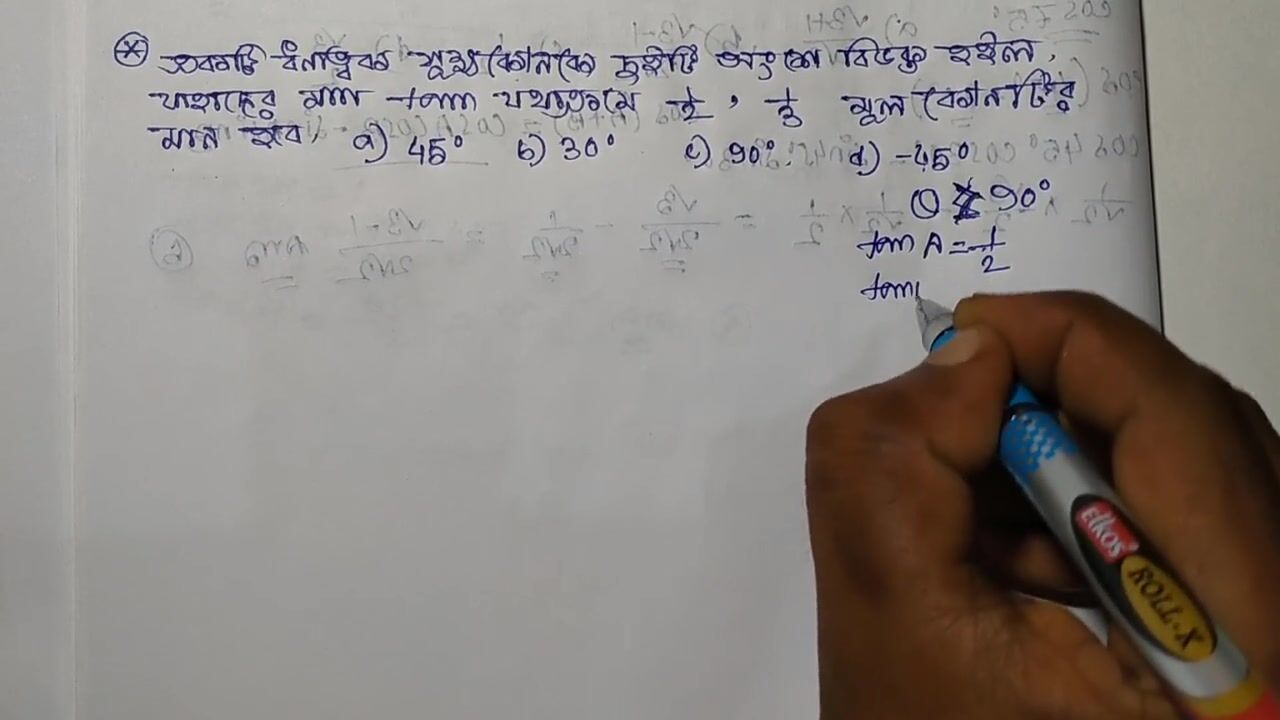 একটি ধনাত্মক সূক্ষ্মকোনকে দুইটি অংশে বিভক্ত হইল,
যাহাদের মান tan যথাক্রমে 1/2, 1/3 মূল কোনটির
মান হবে, a) 45° b) 30° c) 90°. d) -45°
90°
tan A = 1/2
tan
Elkos
ROLL-X